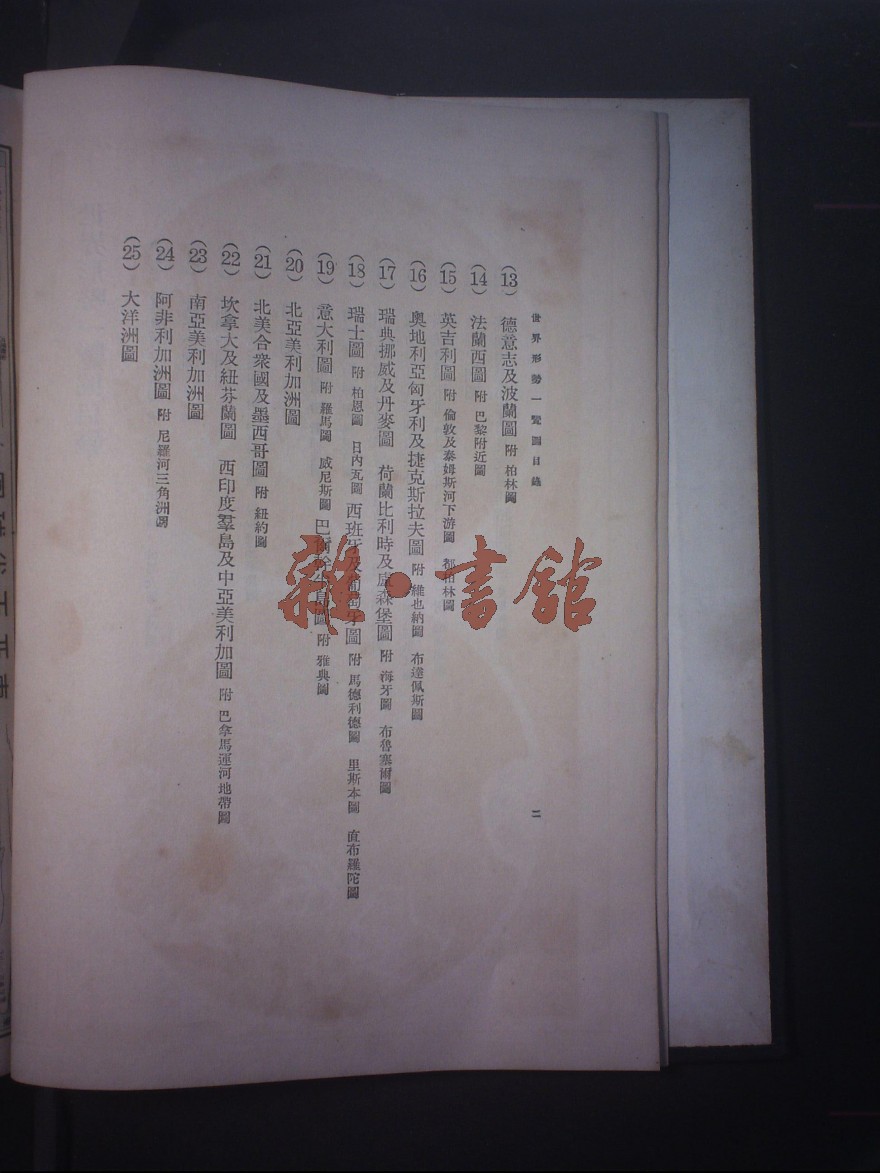 世界形勢一覽圖目錄
二
(13) 德意志及波蘭圖 附 柏林圖
(14) 法蘭西圖 附 巴黎附近圖
(15) 英吉利圖 附 倫敦及泰姆斯河下游圖 都柏林圖
(16) 奧地利亞匈牙利及捷克斯拉夫圖 附 維也納圖 布達佩斯圖
(17) 瑞典挪威及丹麥圖 荷蘭比利時及盧森堡圖 附 海牙圖 布魯塞爾圖
(18) 瑞士圖 附 柏恩圖 日內瓦圖 西班牙及葡萄牙圖 附 馬德利德圖 里斯本圖 直布羅陀圖
(19) 意大利圖 附 羅馬圖 威尼斯圖 巴爾幹半島圖 附 雅典圖
(20) 北亞美利加洲圖
(21) 北美合衆國及墨西哥圖 附 紐約圖
(22) 坎拿大及紐芬蘭圖 西印度羣島及中亞美利加圖 附 巴拿馬運河地帶圖
(23) 南亞美利加洲圖
(24) 阿非利加洲圖 附 尼羅河三角洲圖
(25) 大洋洲圖
雜·書館